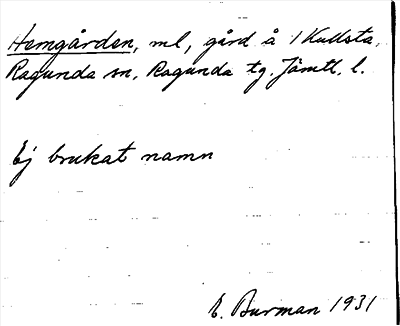 Hemgården, ml, gård å 1 Kullsta,
Ragunda sn, Ragunda tg. Jämtl. l.
Ej brukat namn
E. Burman 1931